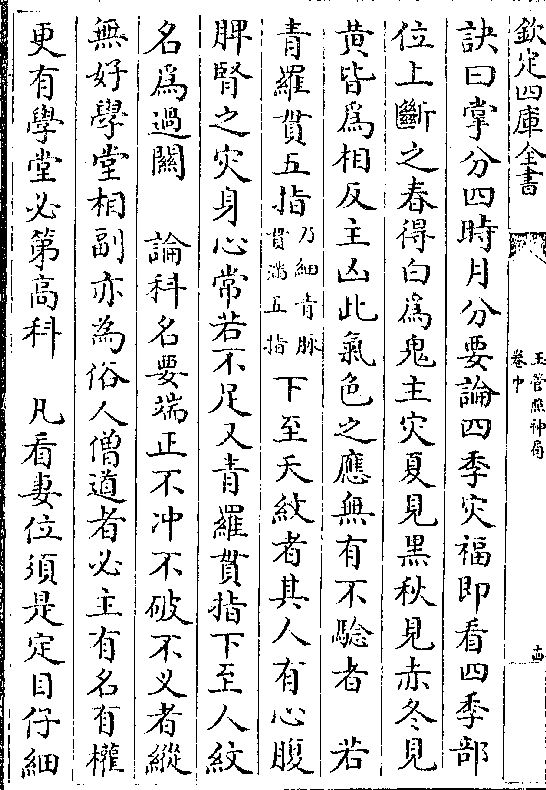 欽定四庫全書
玉管照神局
卷中
訣曰掌分四時月分要論四季灾福即看四季部
位上斷之春得白為鬼主灾夏見黑秋見赤冬見
黄皆為相反主凶此氣色之應無有不騐者　若
青羅貫五指乃細青脉貫滿五指下至天紋者其人有心腹
脾腎之灾身心常若不足又青羅貫指下至人紋
名為過關　論科名要端正不冲不破不义者縱
無好學堂相副亦為俗人僧道者必主有名有權
更有學堂必第高科　凡看妻位須是定目仔細